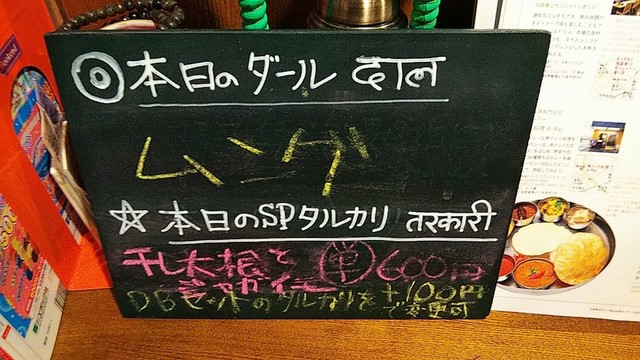 ◎本日のダール दाल
ムング
☆本日のSPタルカリ तरकारी
干し大根と
ジャガイモ
単 600円
DBセットのタルカリを+100円
で変更可